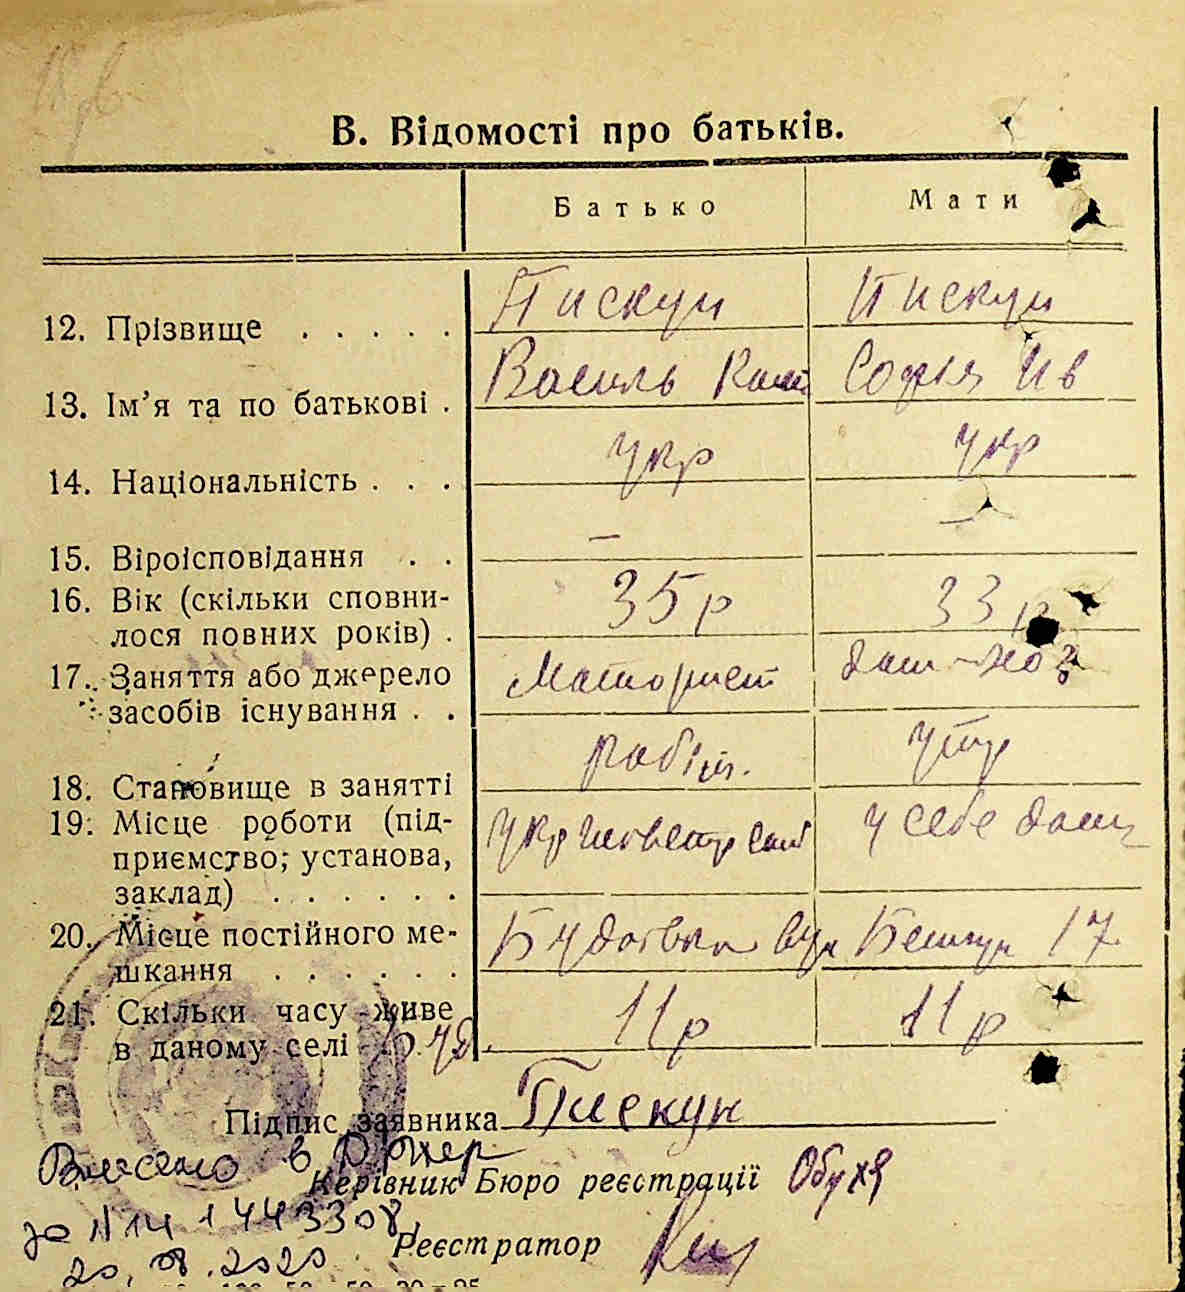 В. Відомості про батьків.
Батько Мати
12. Прізвище . . . . . Пискун Пискун
13. Ім’я та по батькові . Василь Софія Ив
14. Національність . . . укр укр
15. Віроісповідання . . – –
16. Вік (скільки сповни-
лося повних років) . 35 р 33 р
17. Заняття або джерело
засобів існування . . Моторист дом-хоз
18. Становище в занятті робітн. утр
19. Місце роботи (під-
приємство, установа,
заклад) . . . . . . у себе дома
20. Місце постійного ме-
шкання . . . . . . вул 17
21. Скільки часу живе
в даному селі 11 р 11 р
Підпис заявника Пискун
Внесено в
Керівник Бюро реєстрації Обухя
за N 14 1443308,
Реєстратор
20.08.2020